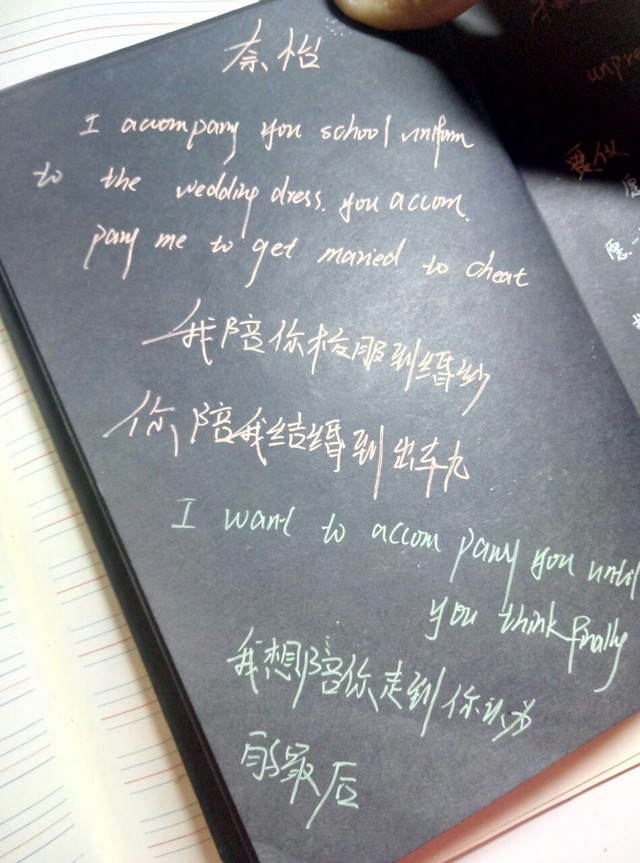 奈怡
I accompany you school uniform
to the wedding dress. you accom.
pany me to get maried to cheat
我陪你校服到婚纱
你陪我结婚到出车九
I want to accom pany you until
you think finally
我想陪你走到你认为
的最后
unpro
愿
愿